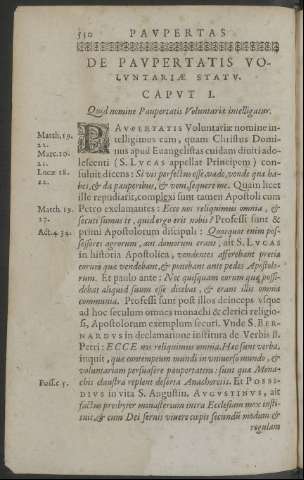 530 PAVPERTAS
DE PAVPERTATIS VO-
LVNTARIÆ STATV.
CAPVT I.
Quid nomine Paupertatis Voluntariæ intelligatur.
PAVPERTATIS Voluntariæ nomine in-
Matth. 19. telligimus eam, quam Christus Domi-
21.
Marc. 10. nus apud Euangelistas cuidam diuiti ado-
21.
Lucæ 18. lescenti (S. LVCAS appellat Principem) con-
22. suluit dicens: Si vis perfectus esse, vade, vende quæ ha-
bes, & da pauperibus, & veni, sequere me. Quam licet
ille repudiarit, complexi sunt tamen Apostoli cum
Matth. 19. Petro exclamantes: Ecce nos reliquimus omnia, &
27. secuti sumus te, quid ergo erit nobis? Professi sunt &
Act. 4. 34. primi Apostolorum discipuli: Quotquot enim pos-
sessores agrorum, aut domorum erant, ait S. LVCAS
in historia Apostolica, vendentes afferebant pretia
eorum quæ vendebant, & ponebant ante pedes Aposto-
lorum. Et paulo ante: Nec quisquam eorum quæ possi-
debat aliquid suum esse dicebat, & erant illis omnia
communia. Professi sunt post illos deinceps vsque
ad hoc seculum omnes monachi & clerici religio-
si, Apostolorum exemplum secuti. Vnde S. BER-
NARDVS in declamatione institura de Verbis B.
Petri: ECCE nos reliquimus omnia. Hæc sunt verba,
inquit, quæ contemptum mundi in vniuerso mundo, &
voluntariam persuasere paupertatem: sunt quæ Mona-
Possi. c. 5. chis claustra replent deserta Anachoritis. Et POSSI-
DIVS in vita S. Augustin. AVGVSTINVS, ait
factus presbyter monasterium intra Ecclesiam mox insti-
tuit, & cum Dei seruis viuere cœpit secundū modum &
regulam